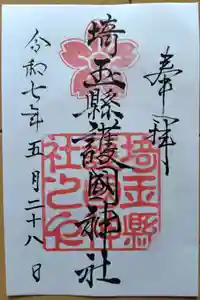 奉拝
埼玉縣護國神社
令和七年五月二十八日
埼玉縣
社之印